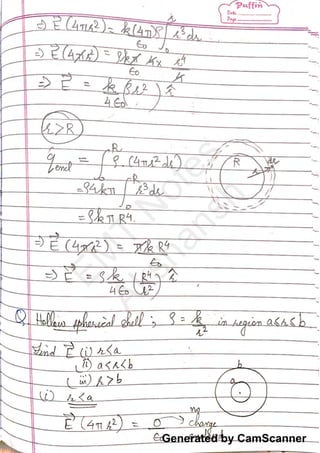 Puffin
Date
Page
⇒ E⃗ (4πr²) = k(4π)ρ/ε₀ ∫₀ʳ r³dr
⇒ E⃗ (4πr²) = ρkπ/ε₀ 4× r⁴/4
⇒ E⃗ = k/4ε₀ (ρr²) r̂
r>R
q_encl = ∫₀ᴿ ρ.(4πr²dr)
= ρ4kπ ∫₀ᴿ r³dr
= ρkπR⁴
R
r
dr
⇒ E⃗ (4πr²) = πkR⁴/ε₀
⇒ E⃗ = ρk/4ε₀ (R⁴/r²) r̂
Q. Hollow spherical shell ; ρ = k/r² in region a≤r≤b
find E⃗ (i) r<a
(ii) a<r<b
(iii) r>b
b
a
(i) r<a
E⃗ (4πr²) = 0/ε₀ → no charge
Generated by CamScanner